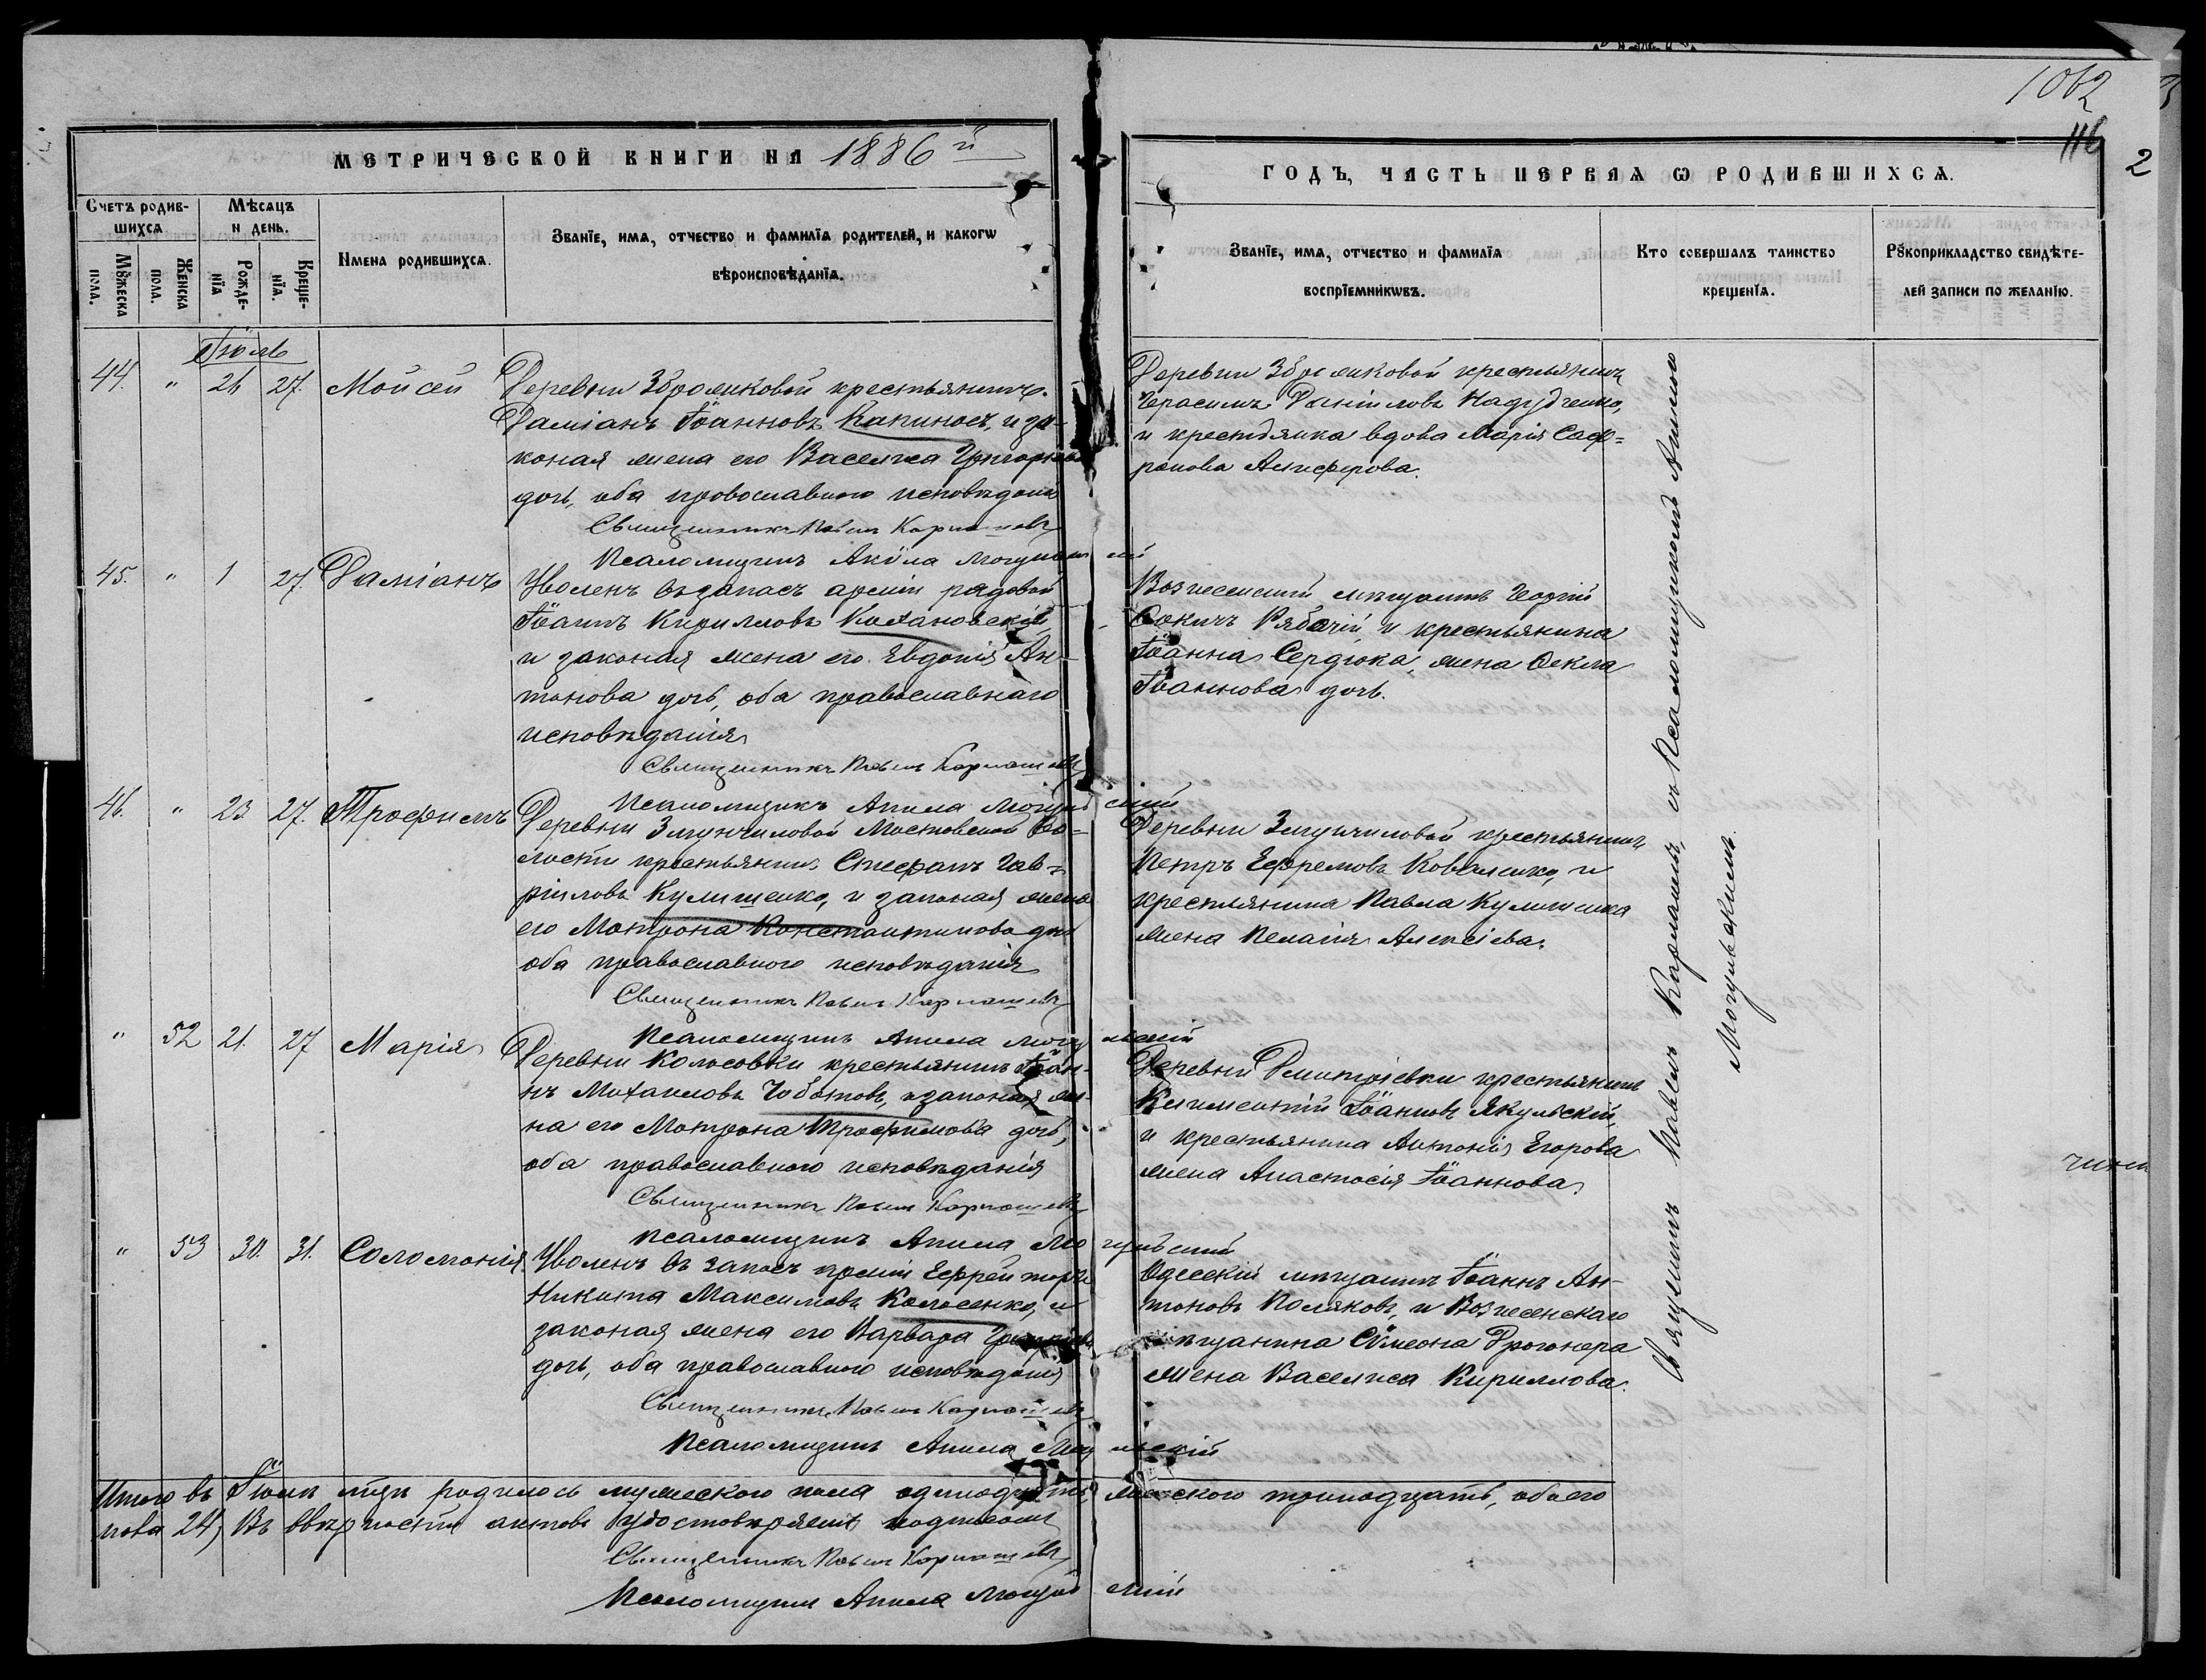 1062
116
2
МЕТРИЧЕСКОЙ КНИГИ НА 1886й
ГОДЪ, ЧАСТЬ ПЕРВАЯ Ѡ РОДИВШИХСѦ.
Счетъ родив-
шихсѧ
Мѣсѧцъ
и день.
Мꙋжеска
пола.
Женска
пола.
Рожде-
нїѧ
Креще-
нїѧ.
Имена родившихсѧ.
Званїе, имѧ, отчество и фамилїѧ родителей, и какогѡ
вѣроисповѣданїѧ.
Званїе, имѧ, отчество и фамилїѧ
воспрїемникѡвъ.
Кто совершалъ таинство
крещенїѧ.
Рꙋкоприкладство свидѣте-
лей записи по желанїю.
Іюль
44. " 26 27. Мойсей
Деревни крестьянинъ
Даміанъ Іоанновъ Капиносъ, и за-
коная жена его Василиса Григорьева
дочь, оба православного исповѣданія
Священникъ Павелъ Карнашевъ
Псаломщикъ Акила Могульскій
Деревни крестьянинъ
Герасимъ Даніиловъ Надудченко,
и крестьянка вдова Марія Саф=
ронова Анисферова.
45. " 1 27. Даміанъ
Уволенъ въ запасъ арміи рядовой
Іоаннъ Кирилловъ Кохановскій
и законая жена его Евдокія Ан-
тонова дочь, оба православнаго
исповѣданія
Священникъ Павелъ Карнашевъ
Псаломщикъ Акила Могульскій
Вознесенскій мѣщанинъ Георгій
Фокичъ Рябочій, и крестьянина
Іоанна Сердюка, жена Ѳекла
Іоаннова дочь.
46. " 23 27. Трофимъ
Деревни Московской Во-
лости крестьянинъ Стефанъ Гав-
ріиловъ Кулишенко, и законая жена
его Матрона Константинова дочь
оба православного исповѣданія
Священникъ Павелъ Карнашевъ
Псаломщикъ Акила Могульскій
Деревни крестьянинъ
Петръ Ефремовъ Коваленко, и
крестьянина Павла Кулишенка
жена Пелагія Алексіева.
" 52 21. 27 Марія
Деревни Колосовки крестьянинъ Іоан-
нъ Михаиловъ Чоботовъ, и законая же-
на его Матрона Трофимова дочь,
оба православного исповѣданія
Священникъ Павелъ Карнашевъ
Псаломщикъ Акила Могульскій
Деревни Дмитріевки крестьянинъ
Климентій Іоанновъ Якульскій,
и крестьянина Антонія Егорова
жена Анастасія Іоаннова
" 53 30. 31. Соломонія
Уволенъ въ запасъ арміи Ефрейторъ
Никита Максимовъ Колосенко, и
законая жена его Варвара Григорьева
дочь, оба православного исповѣданія
Священникъ Павелъ Карнашевъ
Псаломщикъ Акила Могульскій
Одесскій мѣщанинъ Іоаннъ Ан-
тоновъ Поляковъ, и Вознесенскаго
мѣщанина Сѵмеона Дрогонера
жена Василиса Кириллова.
Священникъ Павелъ Карнашевъ, съ Псаломщикомъ Акилою
Могульскимъ.
Итого въ Іюлѣ мѣсяцѣ родилось мужеского пола одинадцать, женского тринадцать, обоего
пола 24, въ вѣрности актовъ удостовѣряемъ подписомъ
Священникъ Павелъ Карнашевъ
Псаломщикъ Акила Могульскій